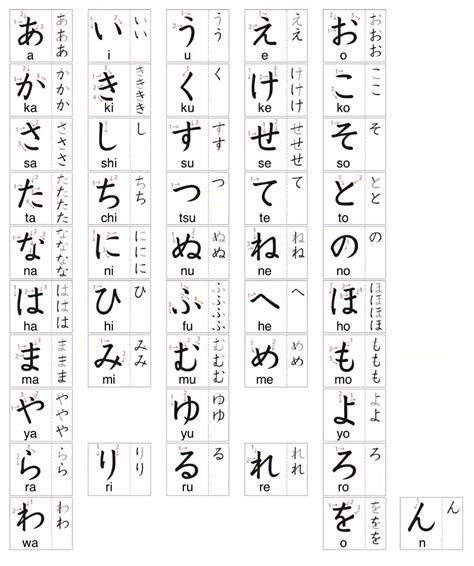 あ あああ い いい う うう え ええ お おおお
a i u e o
か かかか き きききき く く け けけけ こ ここ
ka ki ku ke ko
さ さささ し し す すす せ せせせ そ そ
sa shi su se so
た たたたた ち ちち つ つ て て と とと
ta chi tsu te to
な なななな に ににに ぬ ぬぬ ね ねね の の
na ni nu ne no
は ははは ひ ひ ふ ふふふふ へ へ ほ ほほほほ
ha hi fu he ho
ま ままま み みみ む むむむ め めめ も ももも
ma mi mu me mo
や ややや ゆ ゆゆ よ よよ
ya yu yo
ら らら り りり る る れ れれ ろ ろ
ra ri ru re ro
わ わわ を ををを ん ん
wa o n